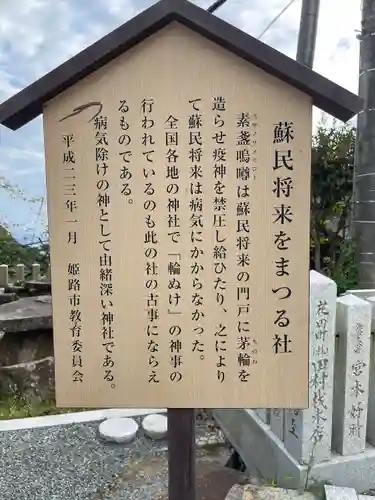 蘇民将来をまつる社
素盞嗚噂は蘇民将来の門戸に茅輪を
スサノウノミコト
ちのわ
造らせ疫神を禁圧し給ひたり、之により
て蘇民将来は病気にかからなかった。
全国各地の神社で「輪ぬけ」の神事の
行われているのも此の社の古事にならえ
るものである。
病気除けの神として由緒深い神社である。
平成二三年一月 姫路市教育委員会